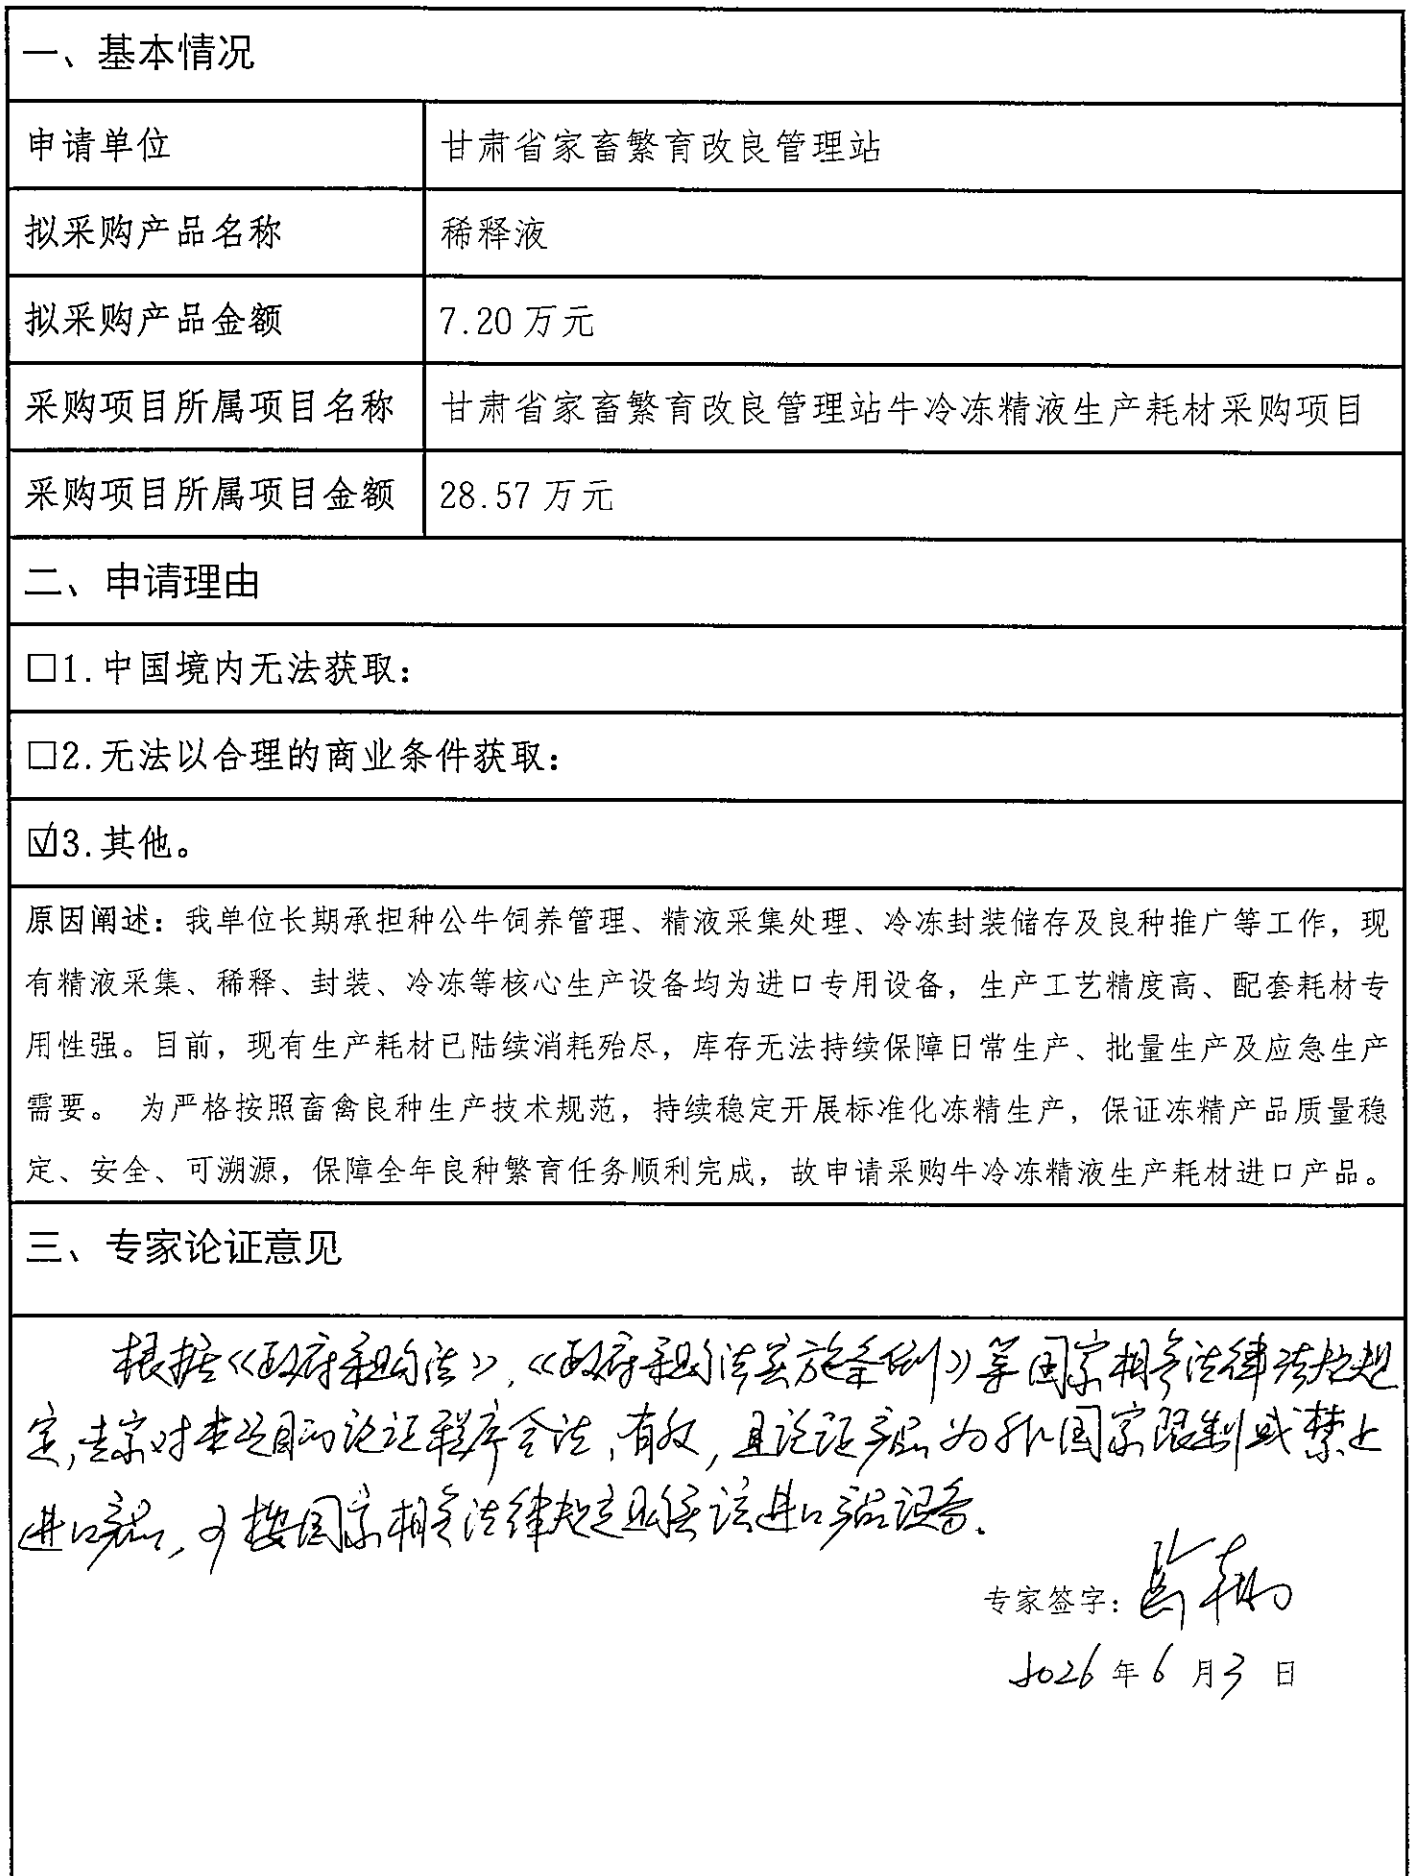 一、基本情况
申请单位 甘肃省家畜繁育改良管理站
拟采购产品名称 稀释液
拟采购产品金额 7.20万元
采购项目所属项目名称 甘肃省家畜繁育改良管理站牛冷冻精液生产耗材采购项目
采购项目所属项目金额 28.57万元
二、申请理由
□1.中国境内无法获取：
□2.无法以合理的商业条件获取：
☑3.其他。
原因阐述：我单位长期承担种公牛饲养管理、精液采集处理、冷冻封装储存及良种推广等工作，现
有精液采集、稀释、封装、冷冻等核心生产设备均为进口专用设备，生产工艺精度高、配套耗材专
用性强。目前，现有生产耗材已陆续消耗殆尽，库存无法持续保障日常生产、批量生产及应急生产
需要。 为严格按照畜禽良种生产技术规范，持续稳定开展标准化冻精生产，保证冻精产品质量稳
定、安全、可溯源，保障全年良种繁育任务顺利完成，故申请采购牛冷冻精液生产耗材进口产品。
三、专家论证意见
根据《政府采购法》，《政府采购法实施条例》等国家相关法律法规规
定，专家对本项目的论证程序合法，有效，且论证产品为非国家限制或禁止
进口产品，可按国家相关法律规定购买该进口产品设备。
专家签字：
2026年6月3日